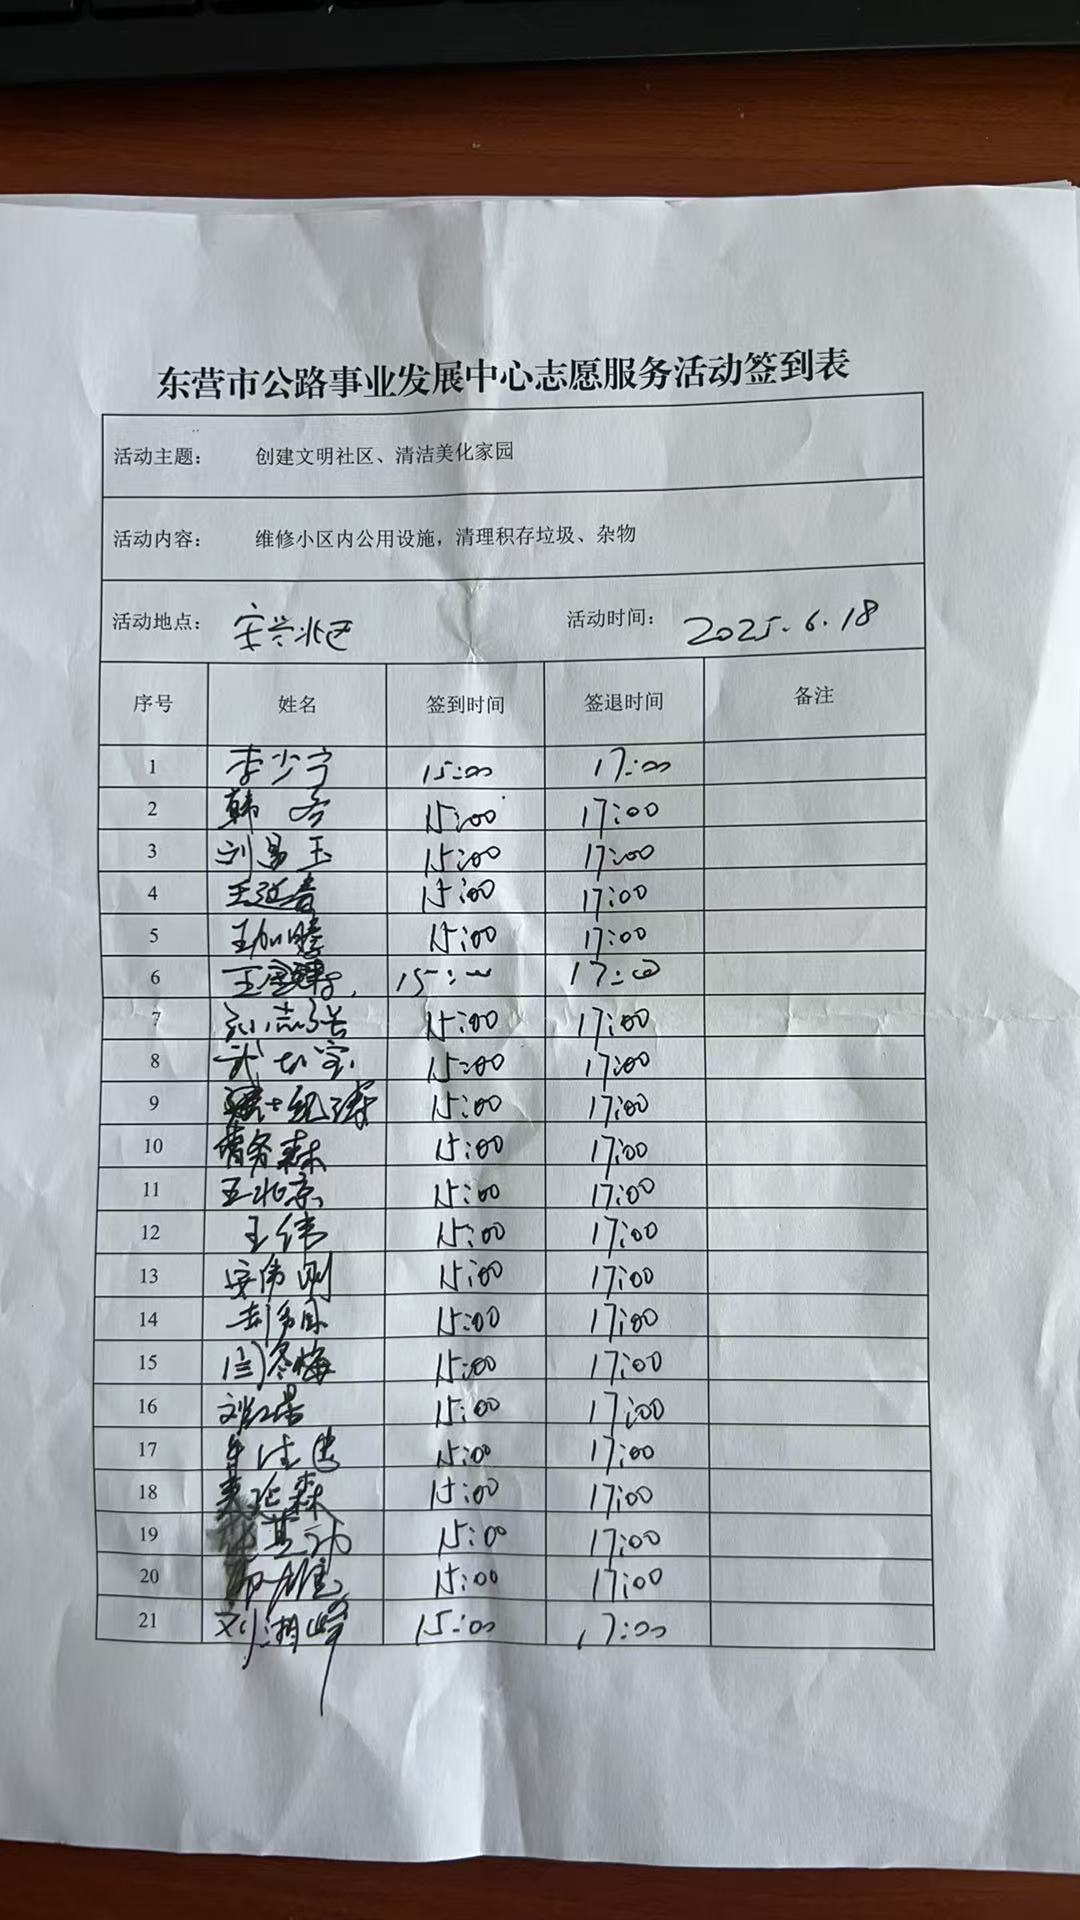 东营市公路事业发展中心志愿服务活动签到表
活动主题： 创建文明社区、清洁美化家园
活动内容： 维修小区内公用设施，清理积存垃圾、杂物
活动地点： 安兴北区 活动时间： 2025.6.18
序号 姓名 签到时间 签退时间 备注
1 李少宁 15:00 17:00
2 韩 15:00 17:00
3 刘昌玉 15:00 17:00
4 王延春 15:00 17:00
5 王加腾 15:00 17:00
6 王 15:00 17:00
7 刘志强 15:00 17:00
8 武 宝 15:00 17:00
9 15:00 17:00
10 森 15:00 17:00
11 王北京 15:00 17:00
12 王伟 15:00 17:00
13 安伟刚 15:00 17:00
14 15:00 17:00
15 闫冬梅 15:00 17:00
16 刘红 15:00 17:00
17 15:00 17:00
18 森 15:00 17:00
19 15:00 17:00
20 15:00 17:00
21 刘湘峰 15:00 17:00